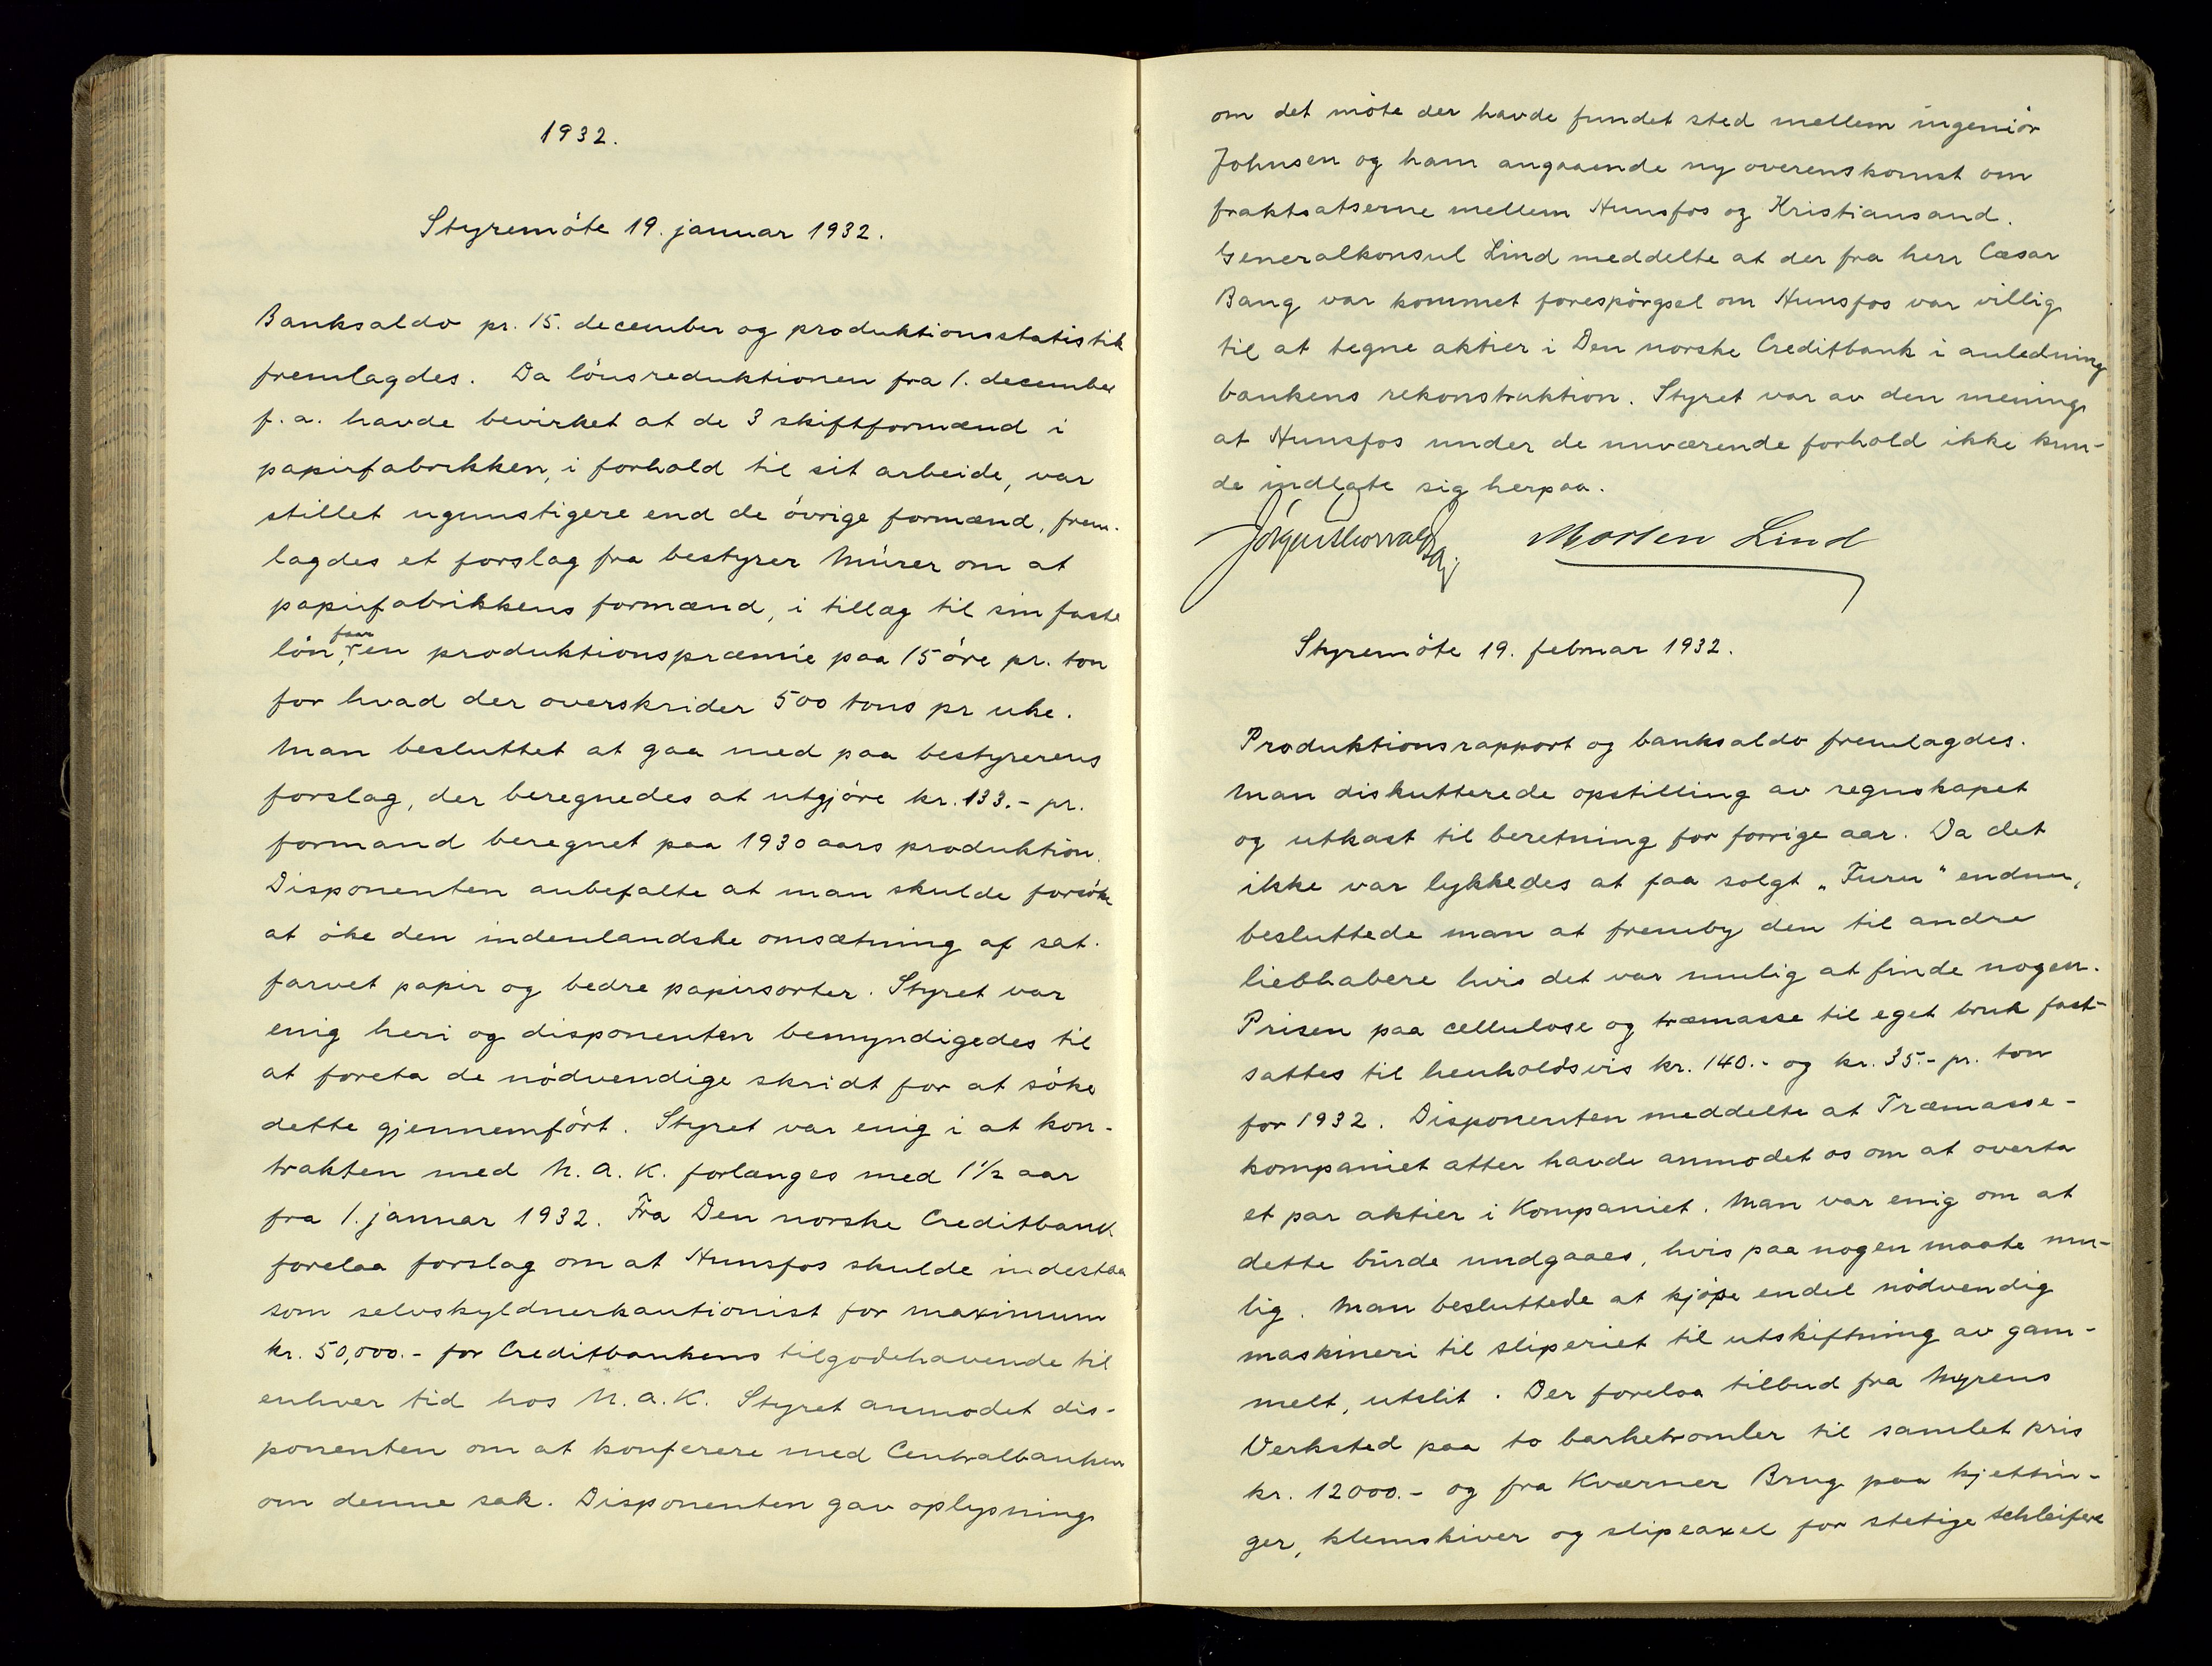 1932.
Styremöte 19. januar 1932.
Banksaldo pr. 15. december og produktionsstatistik
fremlagdes. Da lönsreduktionen fra 1. december
f. a. havde bevirket at de 3 skiftformænd i
papirfabrikken, i forhold til sit arbeide, var
stillet ugunstigere end de övrige formænd, frem-
lagdes et forslag fra bestyrer Mürer om at
papirfabrikkens formænd, i tillæg til sin faste
lön, faar en produktionspræmie paa 15 öre pr. ton
for hvad der overskrider 500 tons pr uke.
Man besluttet at gaa med paa bestyrerens
forslag, der beregnedes at utgjöre kr. 133.- pr.
formand beregnet paa 1930 aars produktion.
Disponenten anbefalte at man skulde forsöke
at öke den indenlandske omsætning af sat.
farvet papir og bedre papirsorter. Styret var
enig heri og disponenten bemyndigedes til
at foreta de nödvendige skridt for at söke
dette gjennemfört. Styret var enig i at kon-
trakten med N. A. K. forlænges med 1 1/2 aar
fra 1. januar 1932. Fra Den norske Creditbank
forelaa forslag om at Hunsfos skulde indestaa
som selvskyldnerkautionist for maximum
kr. 50,000.- for Creditbankens tilgodehavende til
enhver tid hos N. A. K. Styret anmodet dis-
ponenten om at konferere med Centralbanken
om denne sak. Disponenten gav oplysning
om det möte der havde fundet sted mellem ingeniör
Johnsen og ham angaaende ny overenskomst om
fraktsatserne mellem Hunsfos og Kristiansand.
Generalkonsul Lind meddelte at der fra herr Cæsar
Bang var kommet forespörgsel om Hunsfos var villig
til at tegne aktier i Den norske Creditbank i anledning
bankens rekonstruktion. Styret var av den mening
at Hunsfos under de nuværende forhold ikke kun-
de indlate sig herpaa.
Morten Lind
Styremöte 19. februar 1932.
Produktionsrapport og banksaldo fremlagdes.
Man diskutterede opstilling av regnskapet
og utkast til beretning for forrige aar. Da det
ikke var lykkedes at faa solgt „Furu" endnu,
besluttede man at fremby den til andre
liebhabere hvis det var mulig at finde nogen.
Prisen paa cellulose og træmasse til eget bruk fast-
sattes til henholdsvis kr. 140.- og kr. 35.- pr. ton
for 1932. Disponenten meddelte at Træmasse-
kompaniet atter havde anmodet os om at overta
et par aktier i Kompaniet. Man var enig om at
dette burde undgaaes, hvis paa nogen maate mu-
lig. Man besluttede at kjöpe endel nödvendig
maskineri til sliperiet til utskiftning av gam-
melt, utslit. Der forelaa tilbud fra Myrens
Verksted paa to barketromler til samlet pris
kr. 12000.- og fra Kværner Brug paa kjettin-
ger, klemskiver og slipeaxel for stetige schleifere